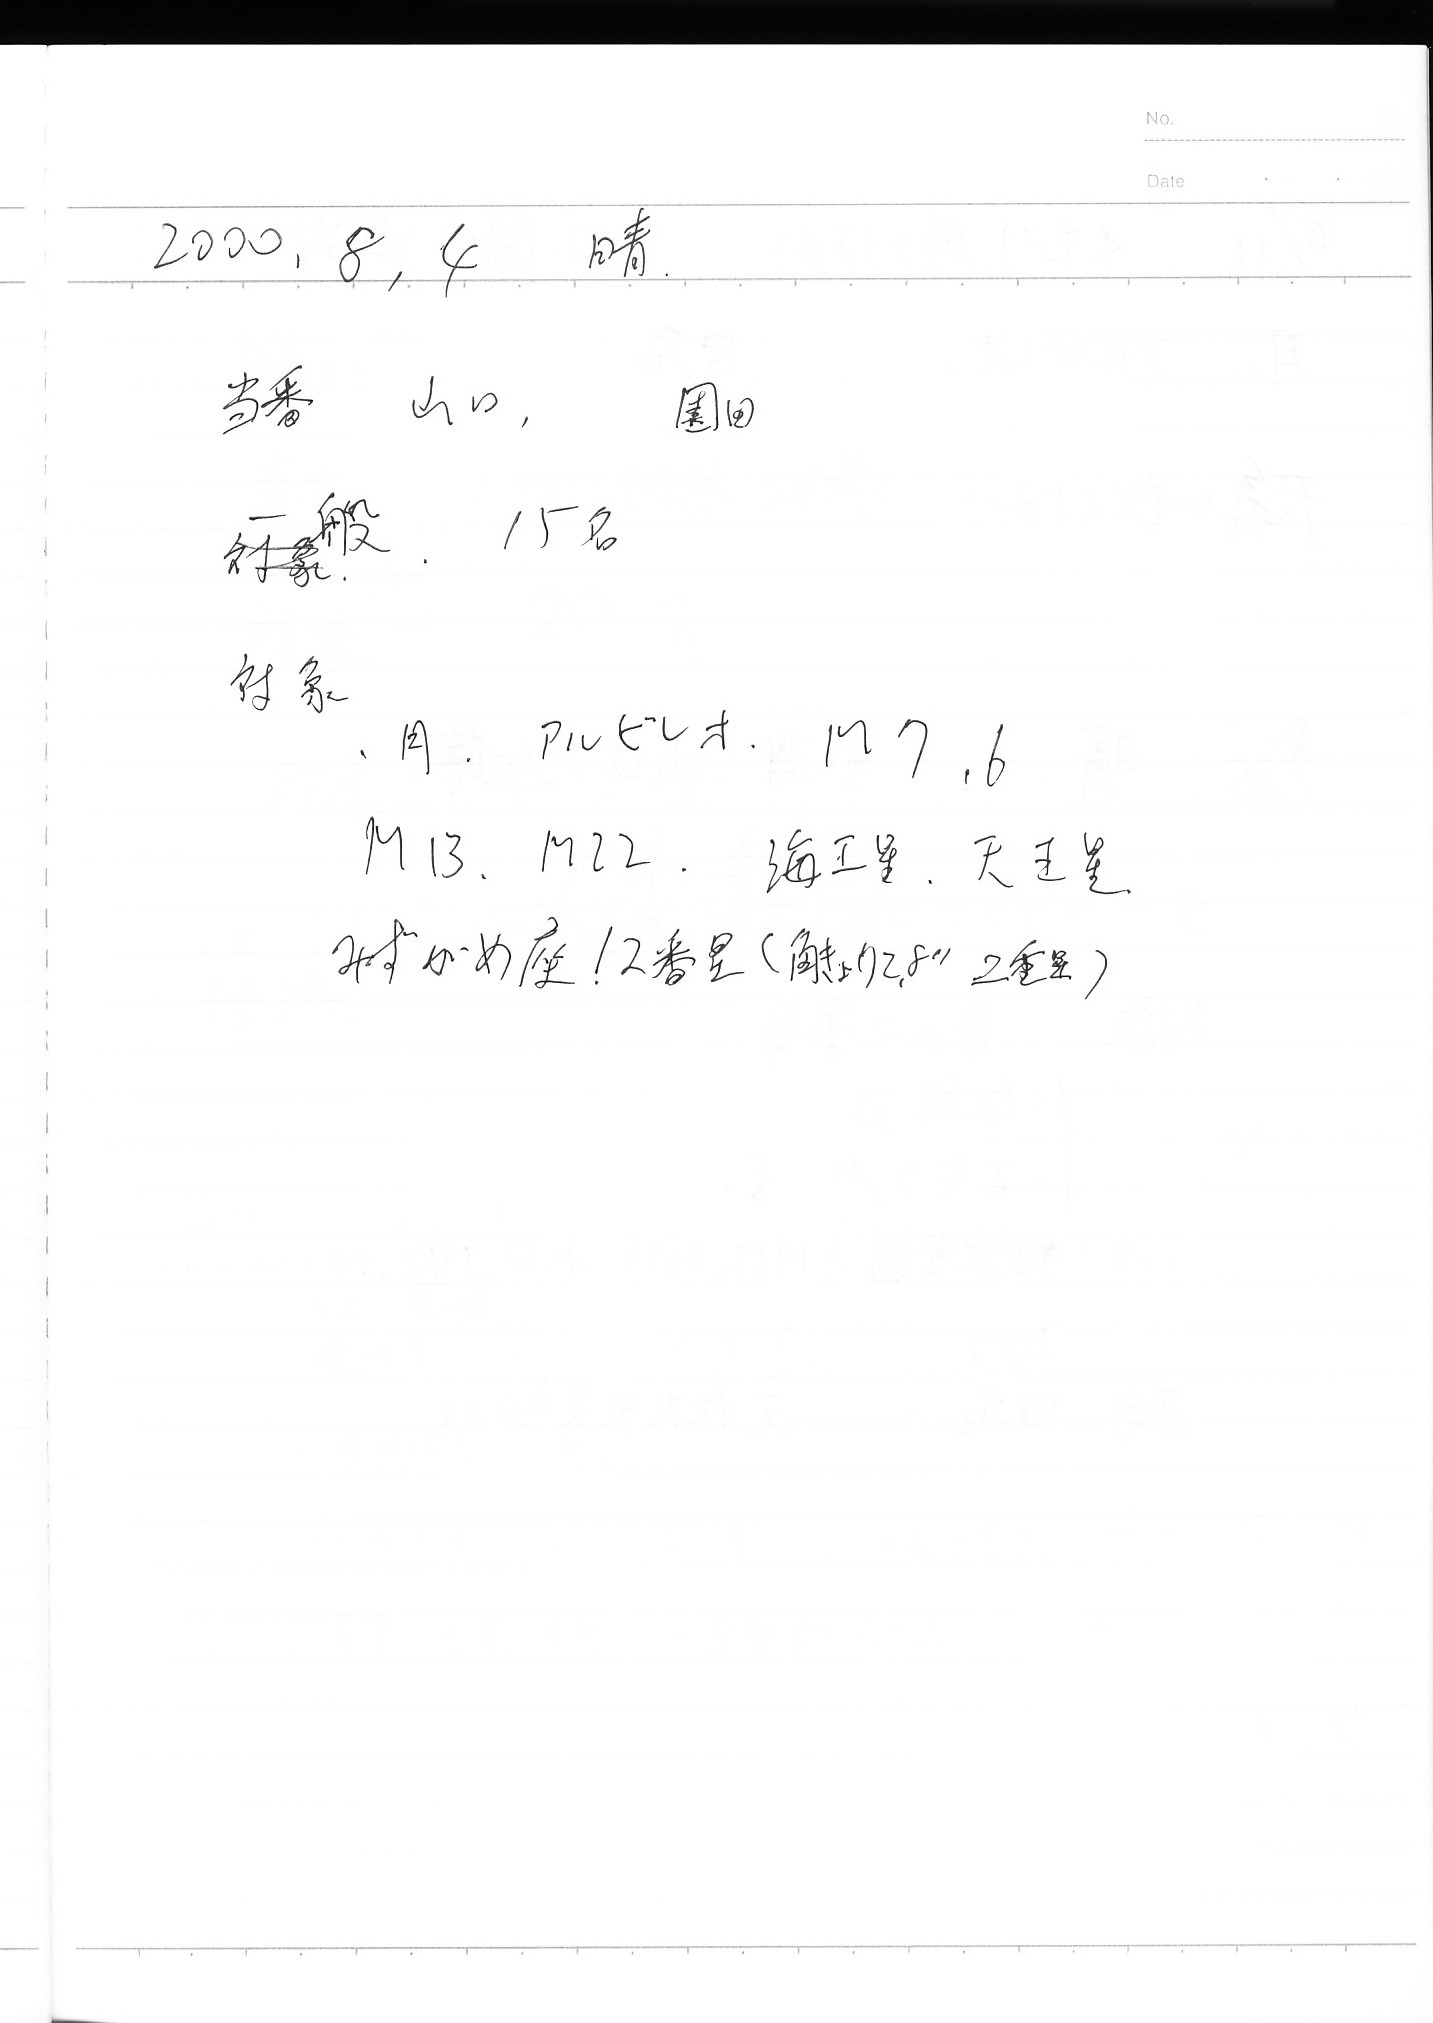 No.
Date
2000, 8, 4 晴.
当番 山口, 園田
一般. 15名
対象.
対象
、月. アルビレオ. M7, 6
M13. M22. 海王星. 天王星.
みずがめ座12番星(角きょり2.8" 2重星)